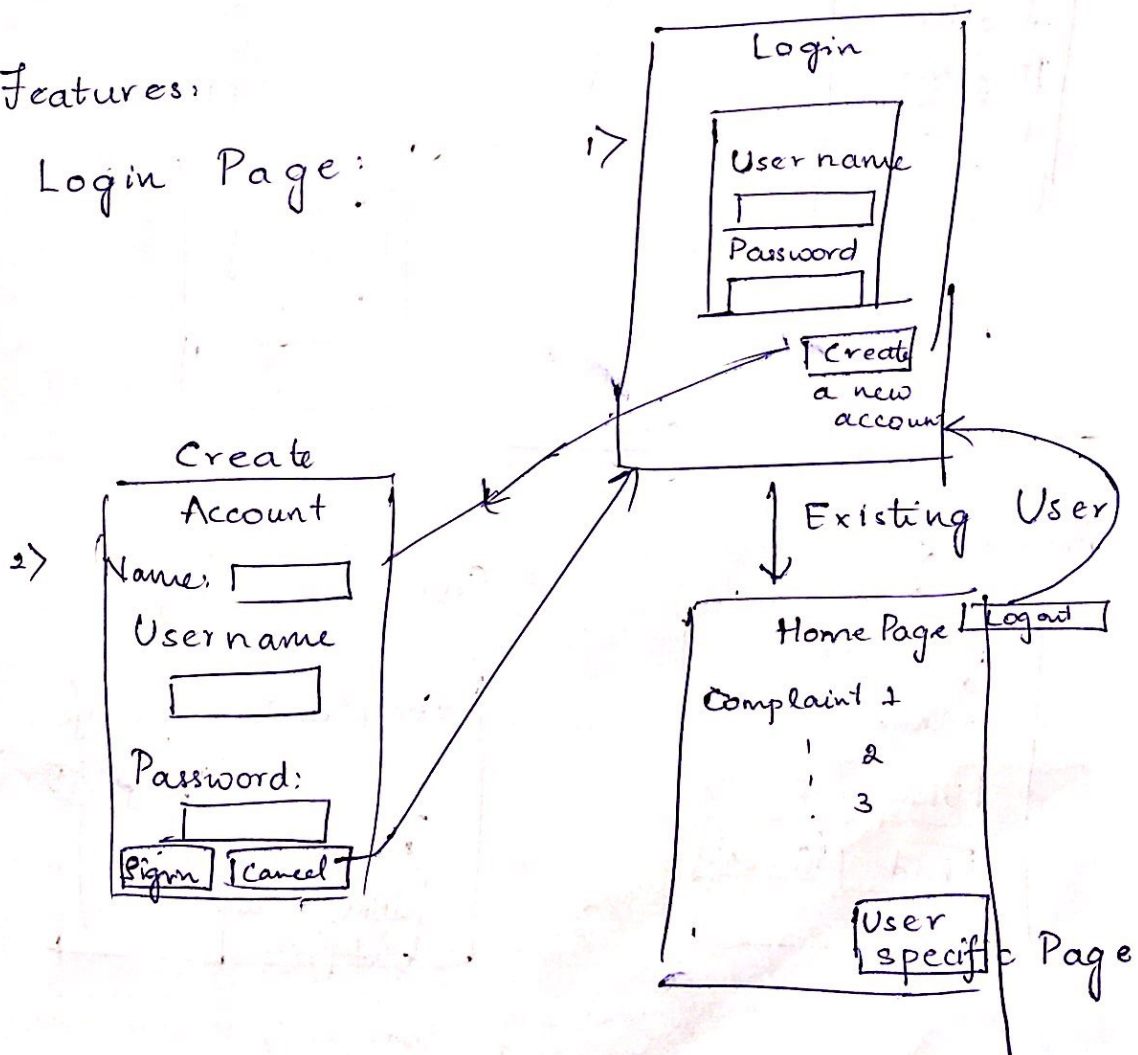 Features:
Login Page:
1>
Login
Username
Password
Create
a new
account
Existing User
2>
Create
Account
Name:
Username
Password:
Signin
Cancel
Home Page
Logout
Complaint 1
2
3
User
specific Page